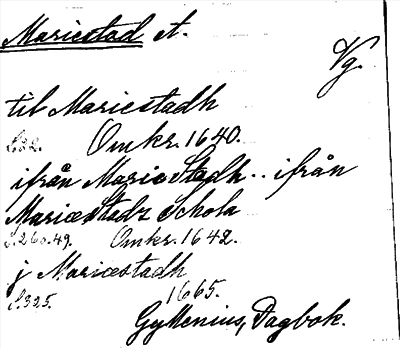 Mariestad st.
Vg.
til Mariestadh
S.22. Omkr. 1640.
ifrån Marie Stadh.. ifrån
MariæStadz Schola
S.260.49. Omkr. 1642.
j Mariæstadh
S.325. 1665.
Gyllenius, Dagbok.